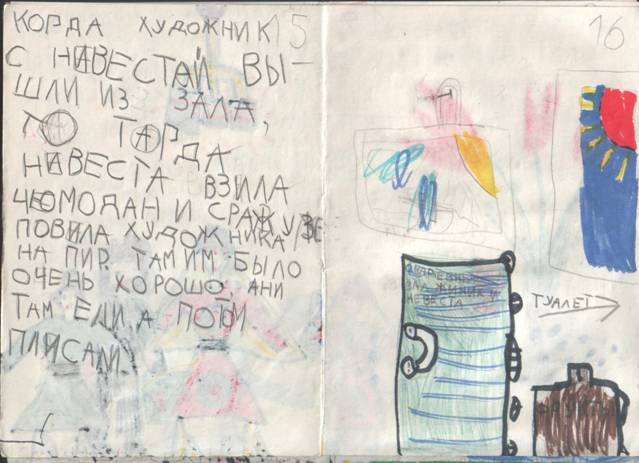 КОРДА ХУДОЖНИК 15
С НАВЕСТАЙ ВЫ-
ШЛИ ИЗ ЗАЛА,
ТО ТАРДА
НАВЕСТА ВЗИЛА
ЧЕОМОДАН И СРАЖУ ЗЕ
ПОВИЛА ХУДОЖНИКА,
НА ПИР. ТАМ ИМ БЫЛО
ОЧЕНЬ ХОРОШО АНИ
ТАМ ЕЛИ А ПОТОМ
ПЛИСАЛИ.
16
ЗЛА ЖИНИХ И
НЕВЕСТА
ТУАЛЕТ